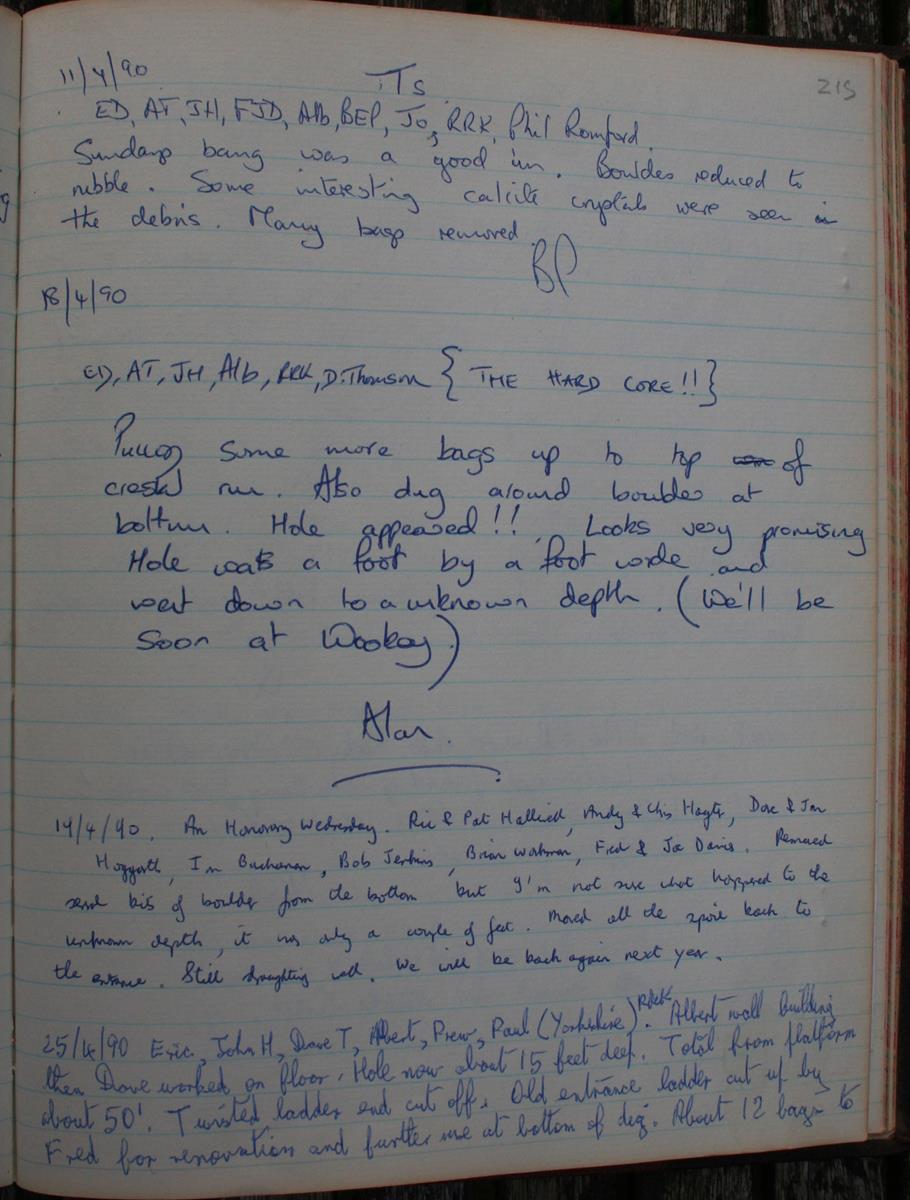 11/4/90
TTs
215
ED, AT, JH, FJD, Alb, BEP, Jo, RRK, Phil Romford.
Sundays bang was a good 'un. Boulder reduced to
rubble. Some interesting calcite crystals were seen in
the debris. Many bags removed.
BP
18/4/90
ED, AT, JH, Alb, RRK, D. Thomson { THE HARD CORE!! }
Pulled some more bags up to top of
crestal run. Also dug around boulder at
bottom. Hole appeared!! Looks very promising
Hole was a foot by a foot wide and
went down to a unknown depth. (We'll be
soon at Wookey.)
Alan.
19/4/90. An Honorary Wednesday. Ric & Pat Halliwell, Andy & Chris Hayter, Dave & Jan
Hoggarth, Ian Buchanan, Bob Jenkins, Brian Workman, Fred & Joe Davies. Removed
several bits of boulder from the bottom but I'm not sure what happened to the
unknown depth, it was only a couple of feet. Moved all the spoil back to
the entrance. Still draughting well. We will be back again next year.
25/4/90 Eric, John H, Dave T, Albert, Prew, Paul (Yorkshire) RRKK. Albert wall building
then Dave worked on floor. Hole now about 15 feet deep. Total from platform
about 50'. Twisted ladder end cut off. Old entrance ladder cut up by
Fred for renovation and further use at bottom of dig. About 12 bags to